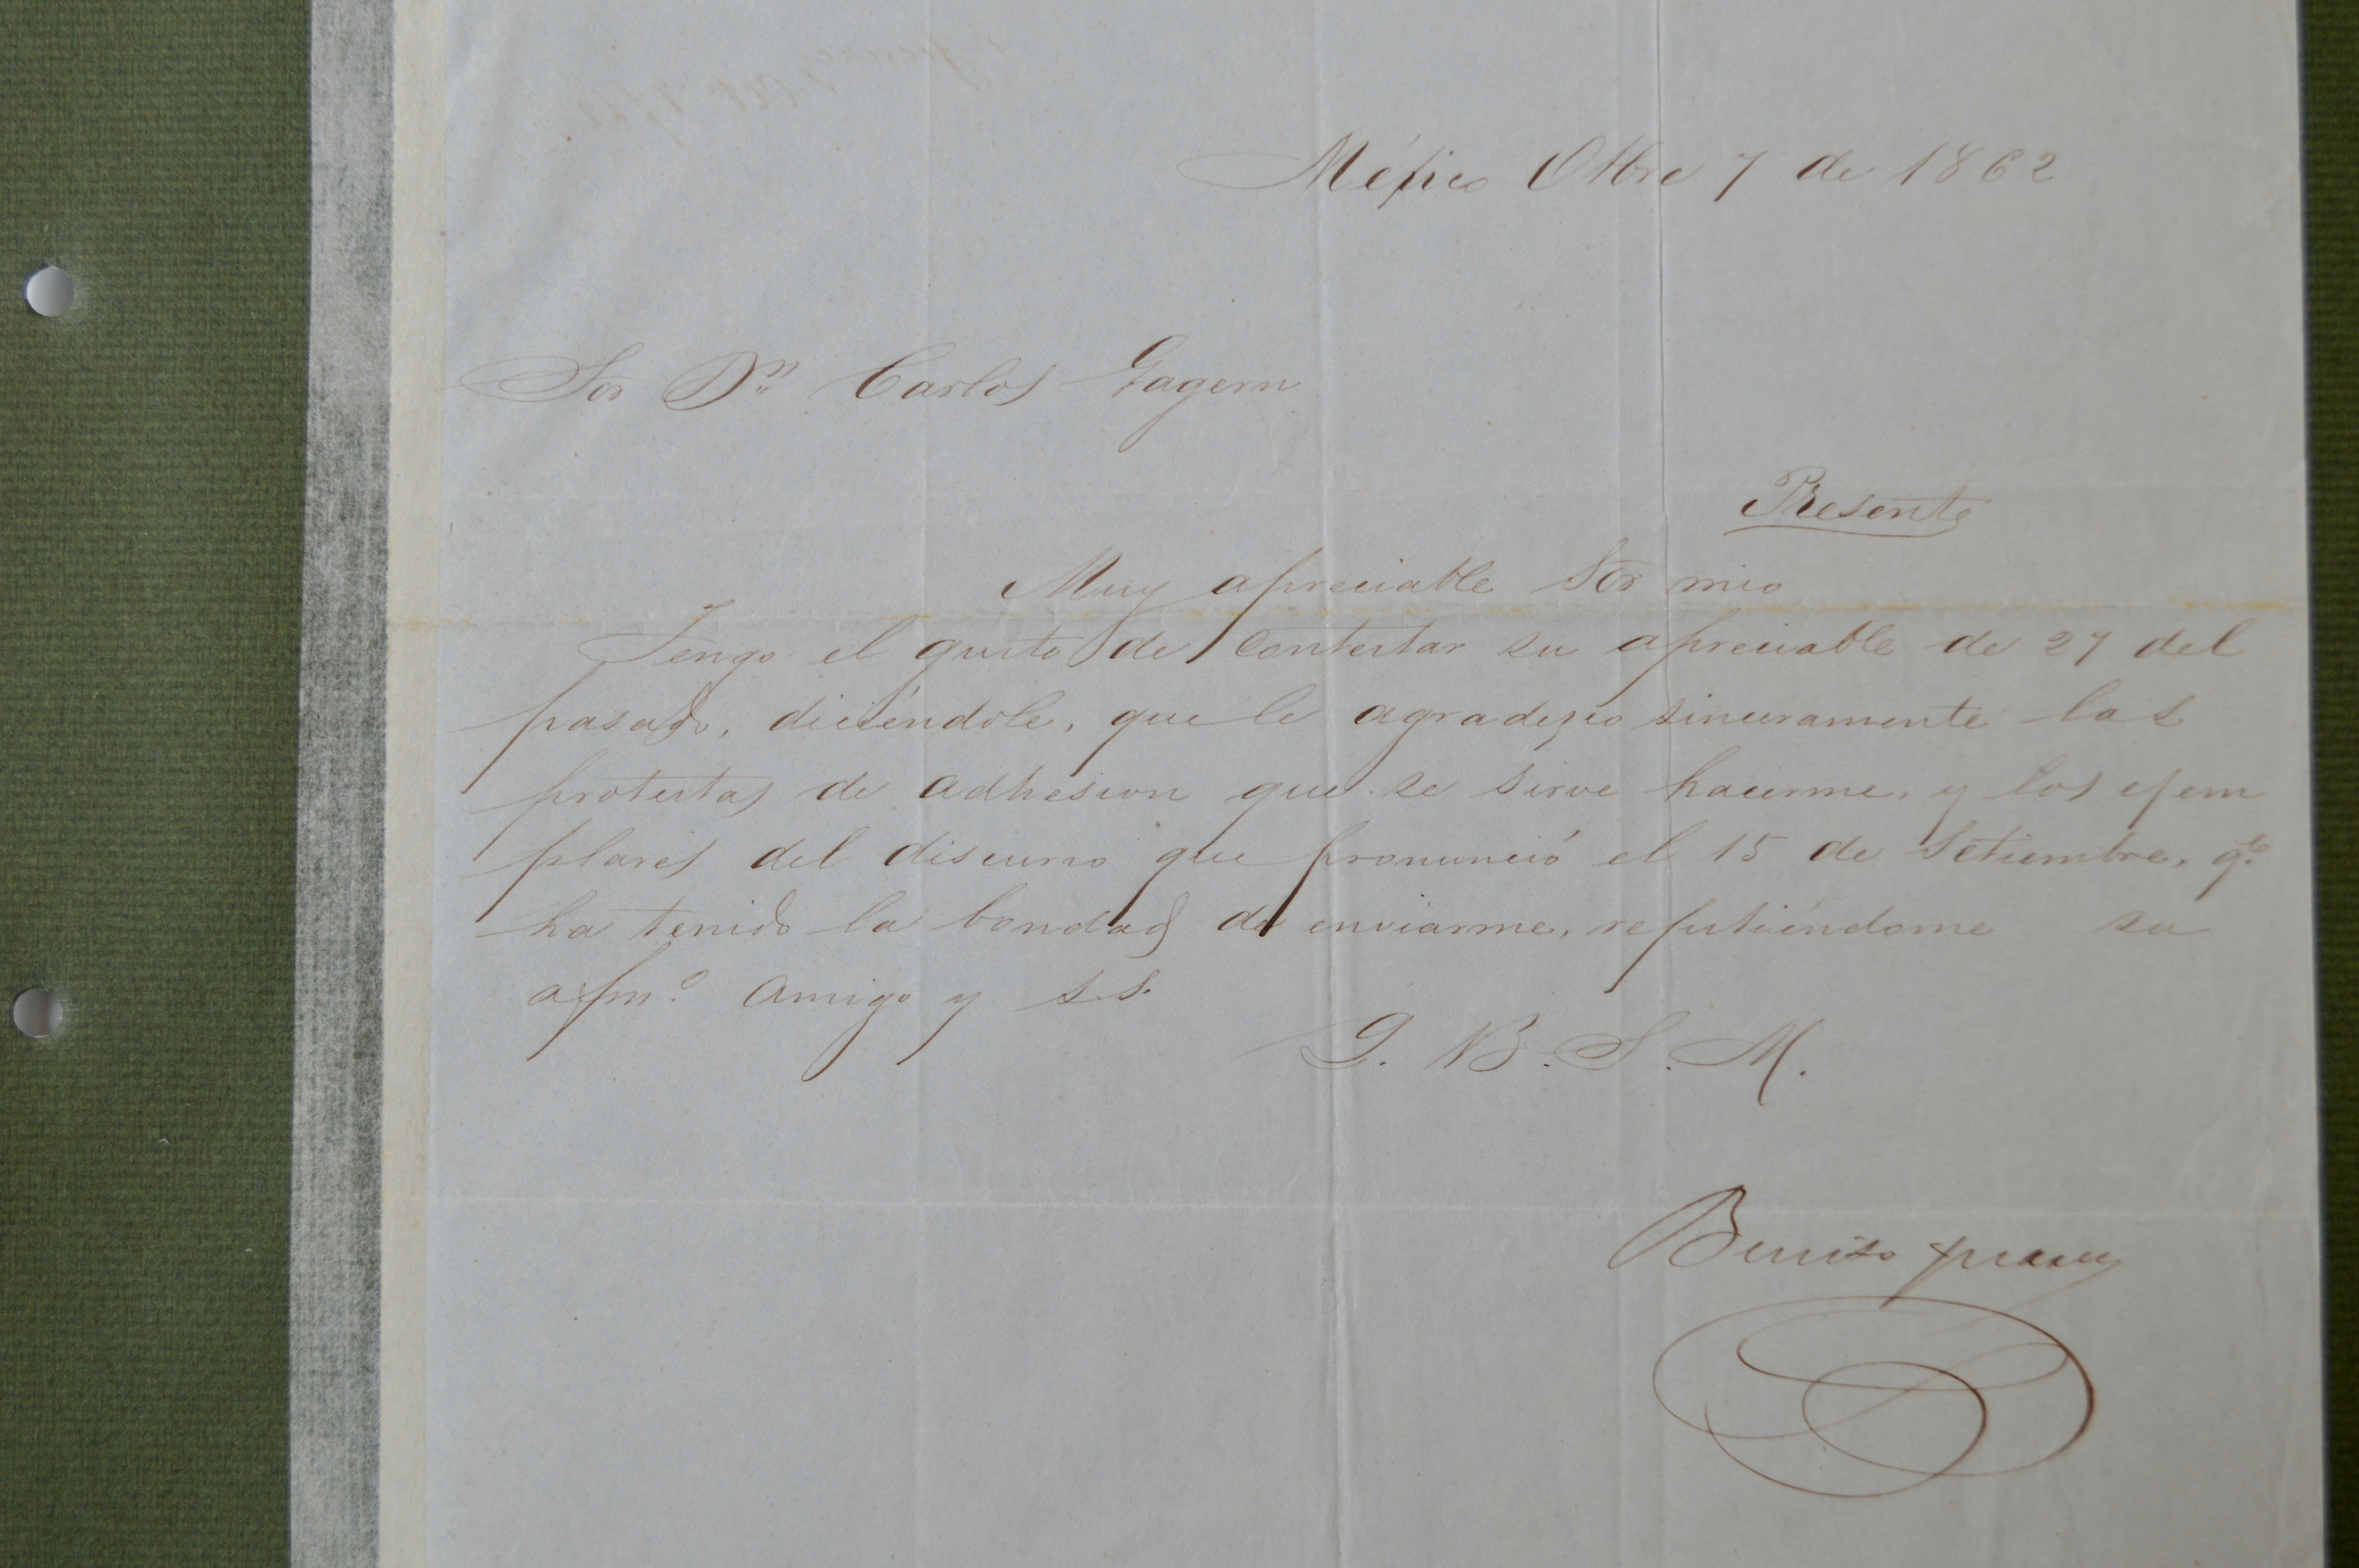 México Otbre 7 de 1862
Sor Dn. Carlos Gagern
Presente
Muy apreciable Sor mio
Tengo el gusto de contestar su apreciable de 27 del
pasado, diciéndole, que le agradezco sinceramente las
protestas de adhesion que se sirve hacerme, y los ejem
plares del discurso que pronunció el 15 de Setiembre, qe.
ha tenido la bondad de enviarme, repitiéndome su
afmo. amigo y s.s.
Q. B. S. M.
Benito Juarez